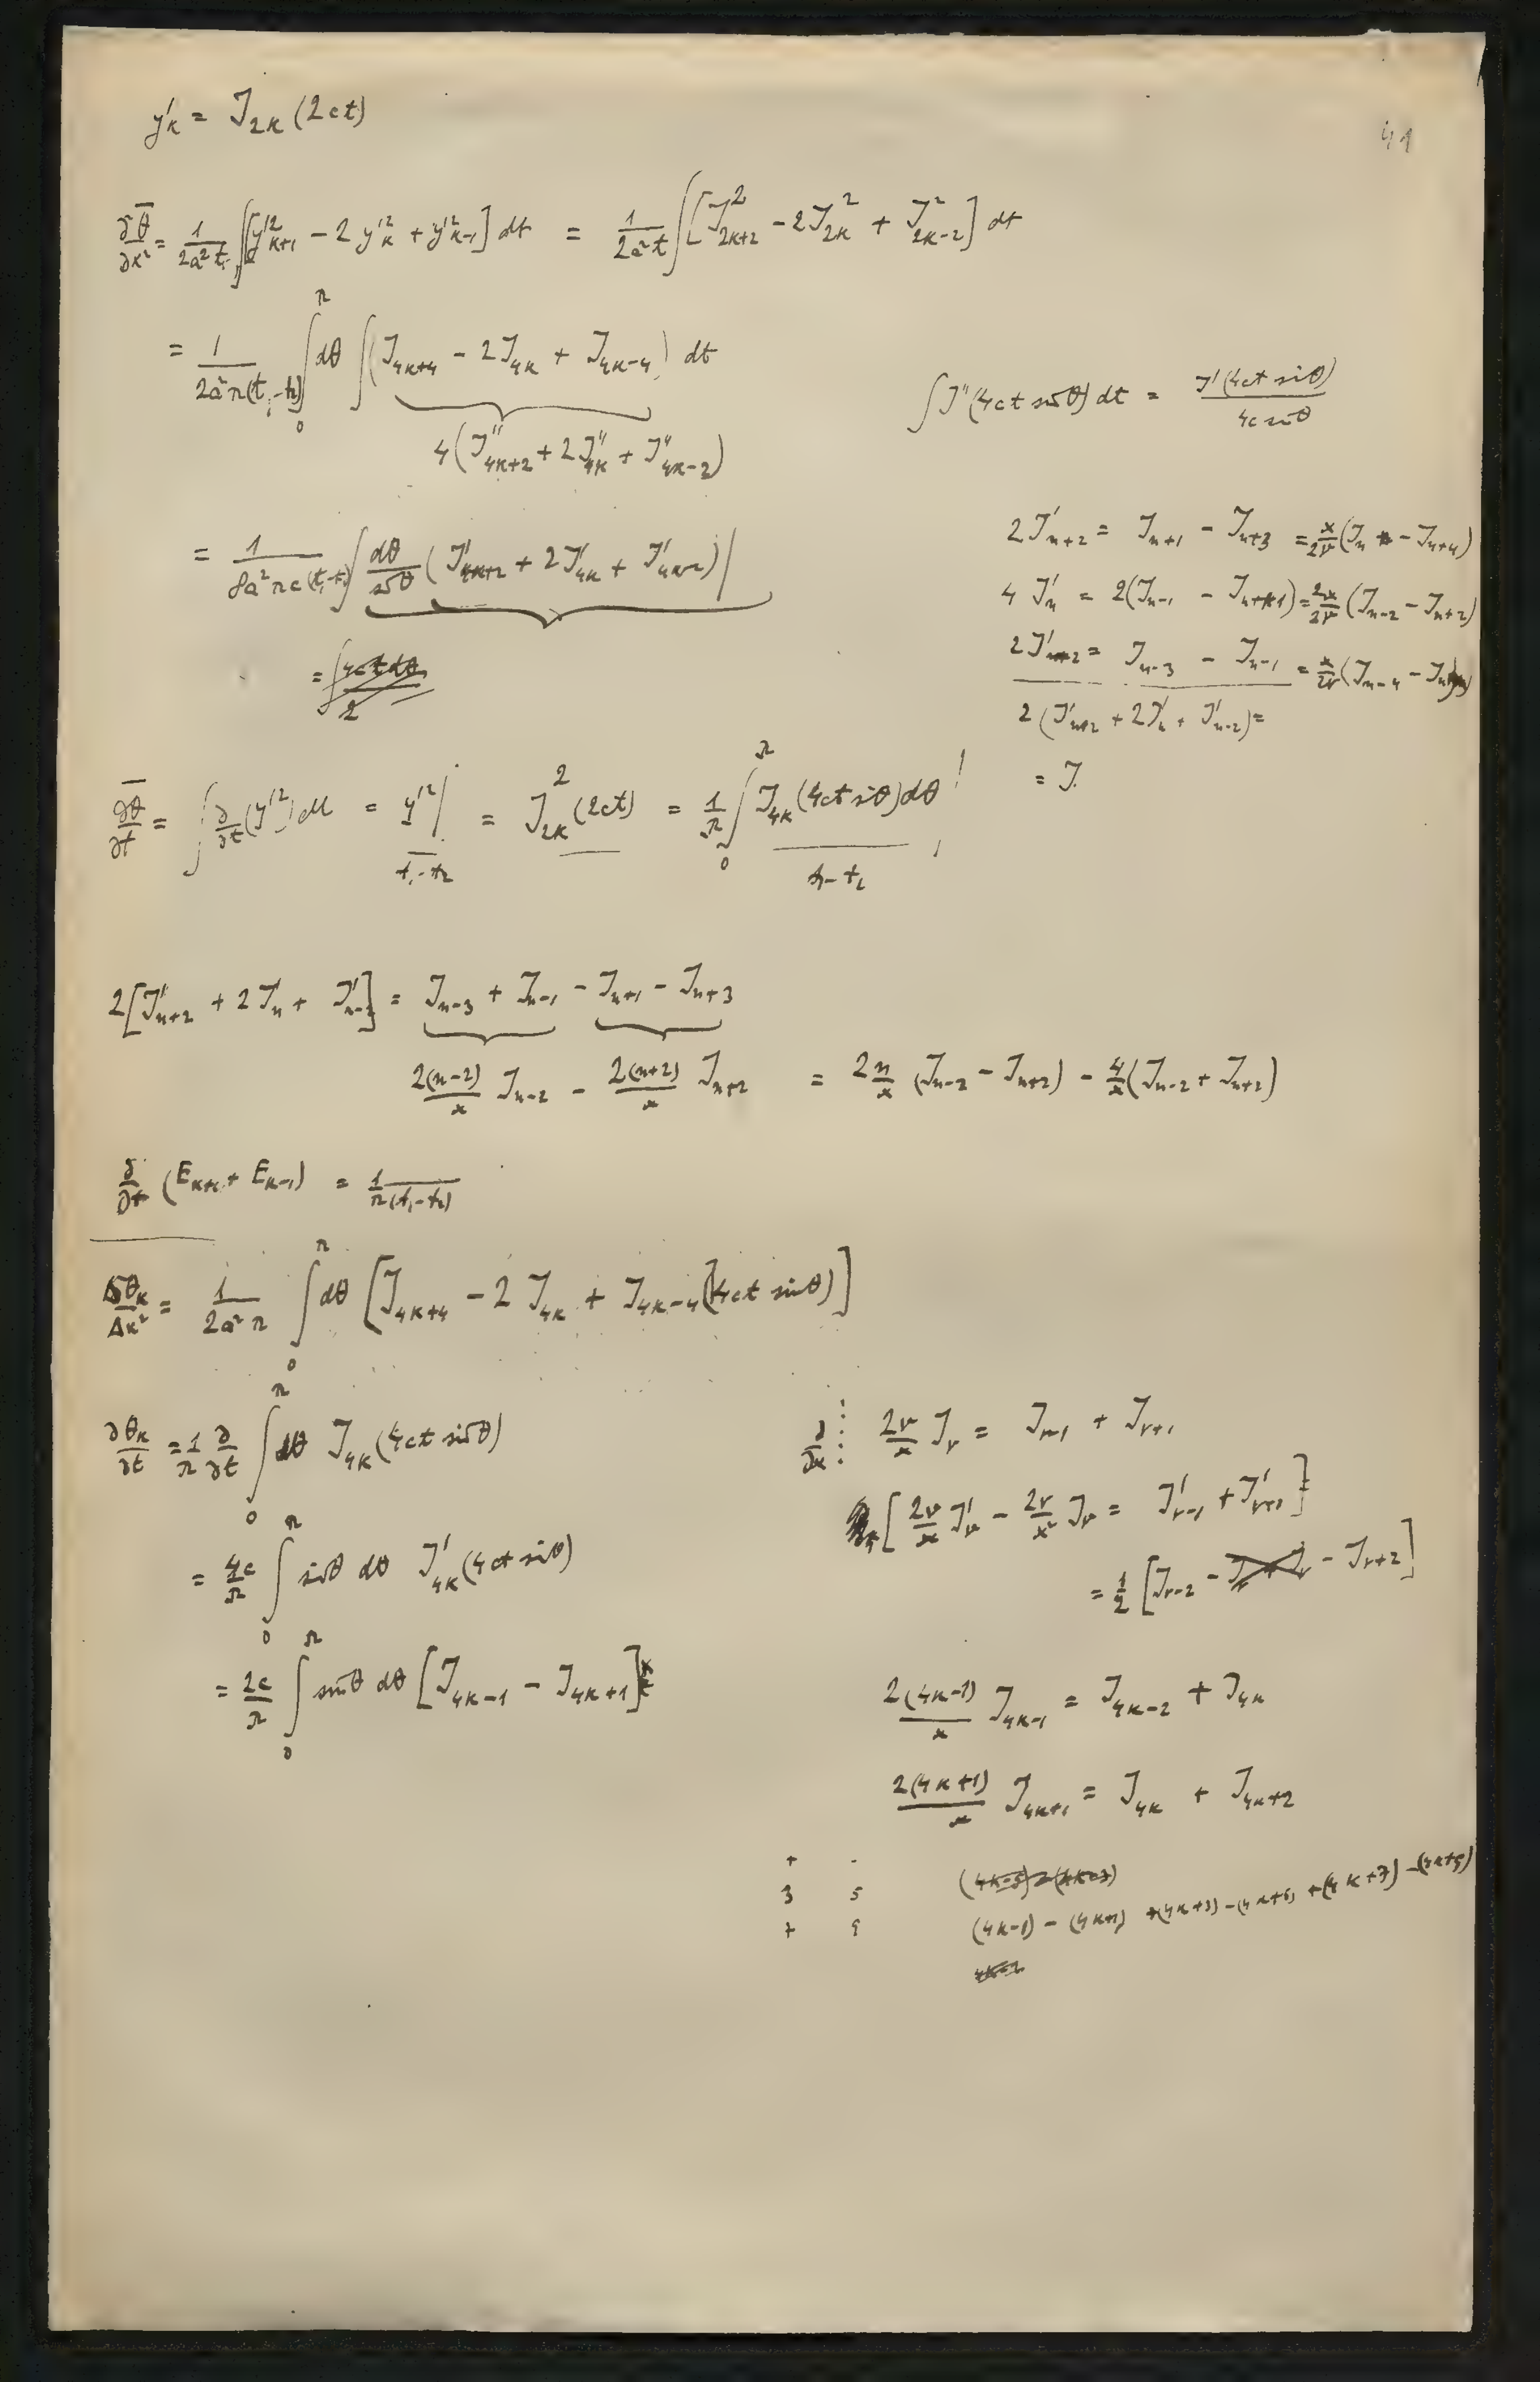 41
y'ₖ = J₂ₖ (2ct)
∂θ̄/∂x² = 1/(2a²t₁) ∫[y'²ₖ₊₁ − 2y'²ₖ + y'²ₖ₋₁] dt = 1/(2a²t) ∫[J²₂ₖ₊₂ − 2J²₂ₖ + J²₂ₖ₋₂] dt
= 1/(2a²π(t₁-t₂)) ∫₀^π dθ ∫(J₄ₖ₊₄ − 2J₄ₖ + J₄ₖ₋₄) dt
4(J''₄ₖ₊₂ + 2J''₄ₖ + J''₄ₖ₋₂)
∫J''(4ct sinθ) dt = J'(4ct sinθ)/(4c sinθ)
= 1/(8a²πc(t₁-t₂)) ∫ dθ/sinθ (J'₄ₖ₊₂ + 2J'₄ₖ + J'₄ₖ₋₂)|
= ∫ 4ct dθ / 2
2J'ₙ₊₂ = Jₙ₊₁ − Jₙ₊₃ = x/2ν (Jₙ − Jₙ₊₄)
4J'ₙ = 2(Jₙ₋₁ − Jₙ₊₁) = 2x/2ν (Jₙ₋₂ − Jₙ₊₂)
2J'ₙ₋₂ = Jₙ₋₃ − Jₙ₋₁ = x/2ν (Jₙ₋₄ − Jₙ)
2(J'ₙ₊₂ + 2J'ₙ + J'ₙ₋₂) =
= J.
∂θ̄/∂t = ∫ ∂/∂t (y'²) dt = y'²|/(t₁-t₂) = J²₂ₖ(2ct) = 1/π ∫₀^π J₄ₖ(4ct sinθ)dθ / (t₁-t₂)
2[J'ₙ₊₂ + 2J'ₙ + J'ₙ₋₂] = Jₙ₋₃ + Jₙ₋₁ − Jₙ₊₁ − Jₙ₊₃
2(n-2)/x Jₙ₋₂ − 2(n+2)/x Jₙ₊₂ = 2n/x (Jₙ₋₂ − Jₙ₊₂) − 4/x (Jₙ₋₂ + Jₙ₊₂)
∂/∂t (Eₖ₊₁ + Eₖ₋₁) = 1/(π(t₁-t₂))
Δθₖ/Δx² = 1/(2a²π) ∫₀^π dθ [J₄ₖ₊₄ − 2J₄ₖ + J₄ₖ₋₄(4ct sinθ)]
∂θₖ/∂t = 1/π ∂/∂t ∫₀^π dθ J₄ₖ(4ct sinθ)
= 4c/π ∫₀^π sinθ dθ J'₄ₖ(4ct sinθ)
= 2c/π ∫₀^π sinθ dθ [J₄ₖ₋₁ − J₄ₖ₊₁]
∂/∂x ⋮ 2ν/x Jᵥ = Jᵥ₋₁ + Jᵥ₊₁
[2ν/x J'ᵥ − 2ν/x² Jᵥ = J'ᵥ₋₁ + J'ᵥ₊₁]
= 1/2 [Jᵥ₋₂ − Jᵥ + Jᵥ − Jᵥ₊₂]
2(4k-1)/x J₄ₖ₋₁ = J₄ₖ₋₂ + J₄ₖ
2(4k+1)/x J₄ₖ₊₁ = J₄ₖ + J₄ₖ₊₂
+ -
3 5
7 9
(4k-1) − (4k+1) + (4k+3) − (4k+5) + (4k+7) − (4k+9)